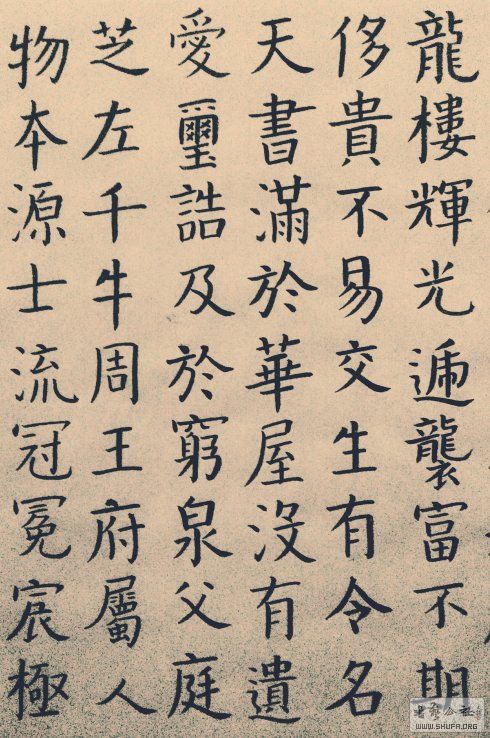 龍樓輝光遞襲富不期
侈貴不易交生有令名
天書滿於華屋沒有遺
愛璽誥及於窮泉父庭
芝左千牛周王府屬人
物本源士流冠冕宸極
WWW.SHUFA.ORG